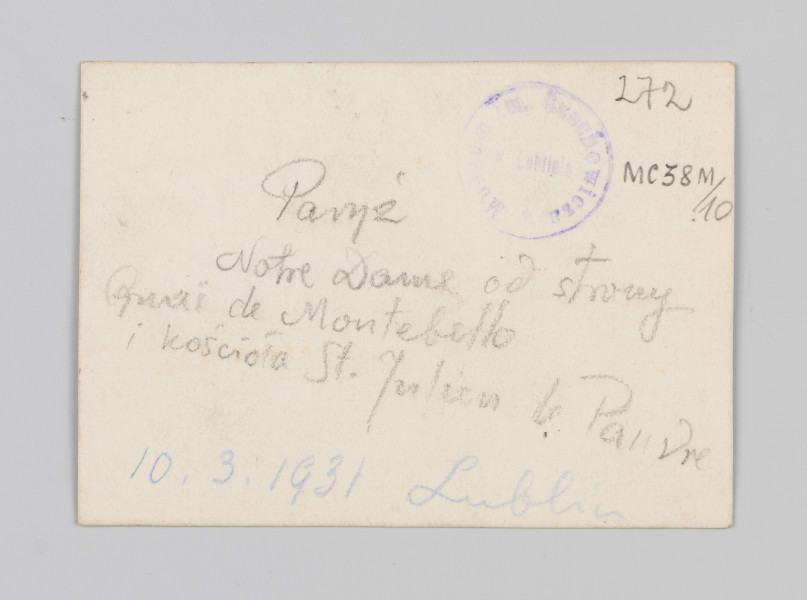 272
Muzeum im. Czechowicza
w Lublinie
MC38M/10
Paryż
Notre Dame od strony
Quai de Montebello
i kościoła St. Julien le Pauvre
10. 3. 1931 Lublin